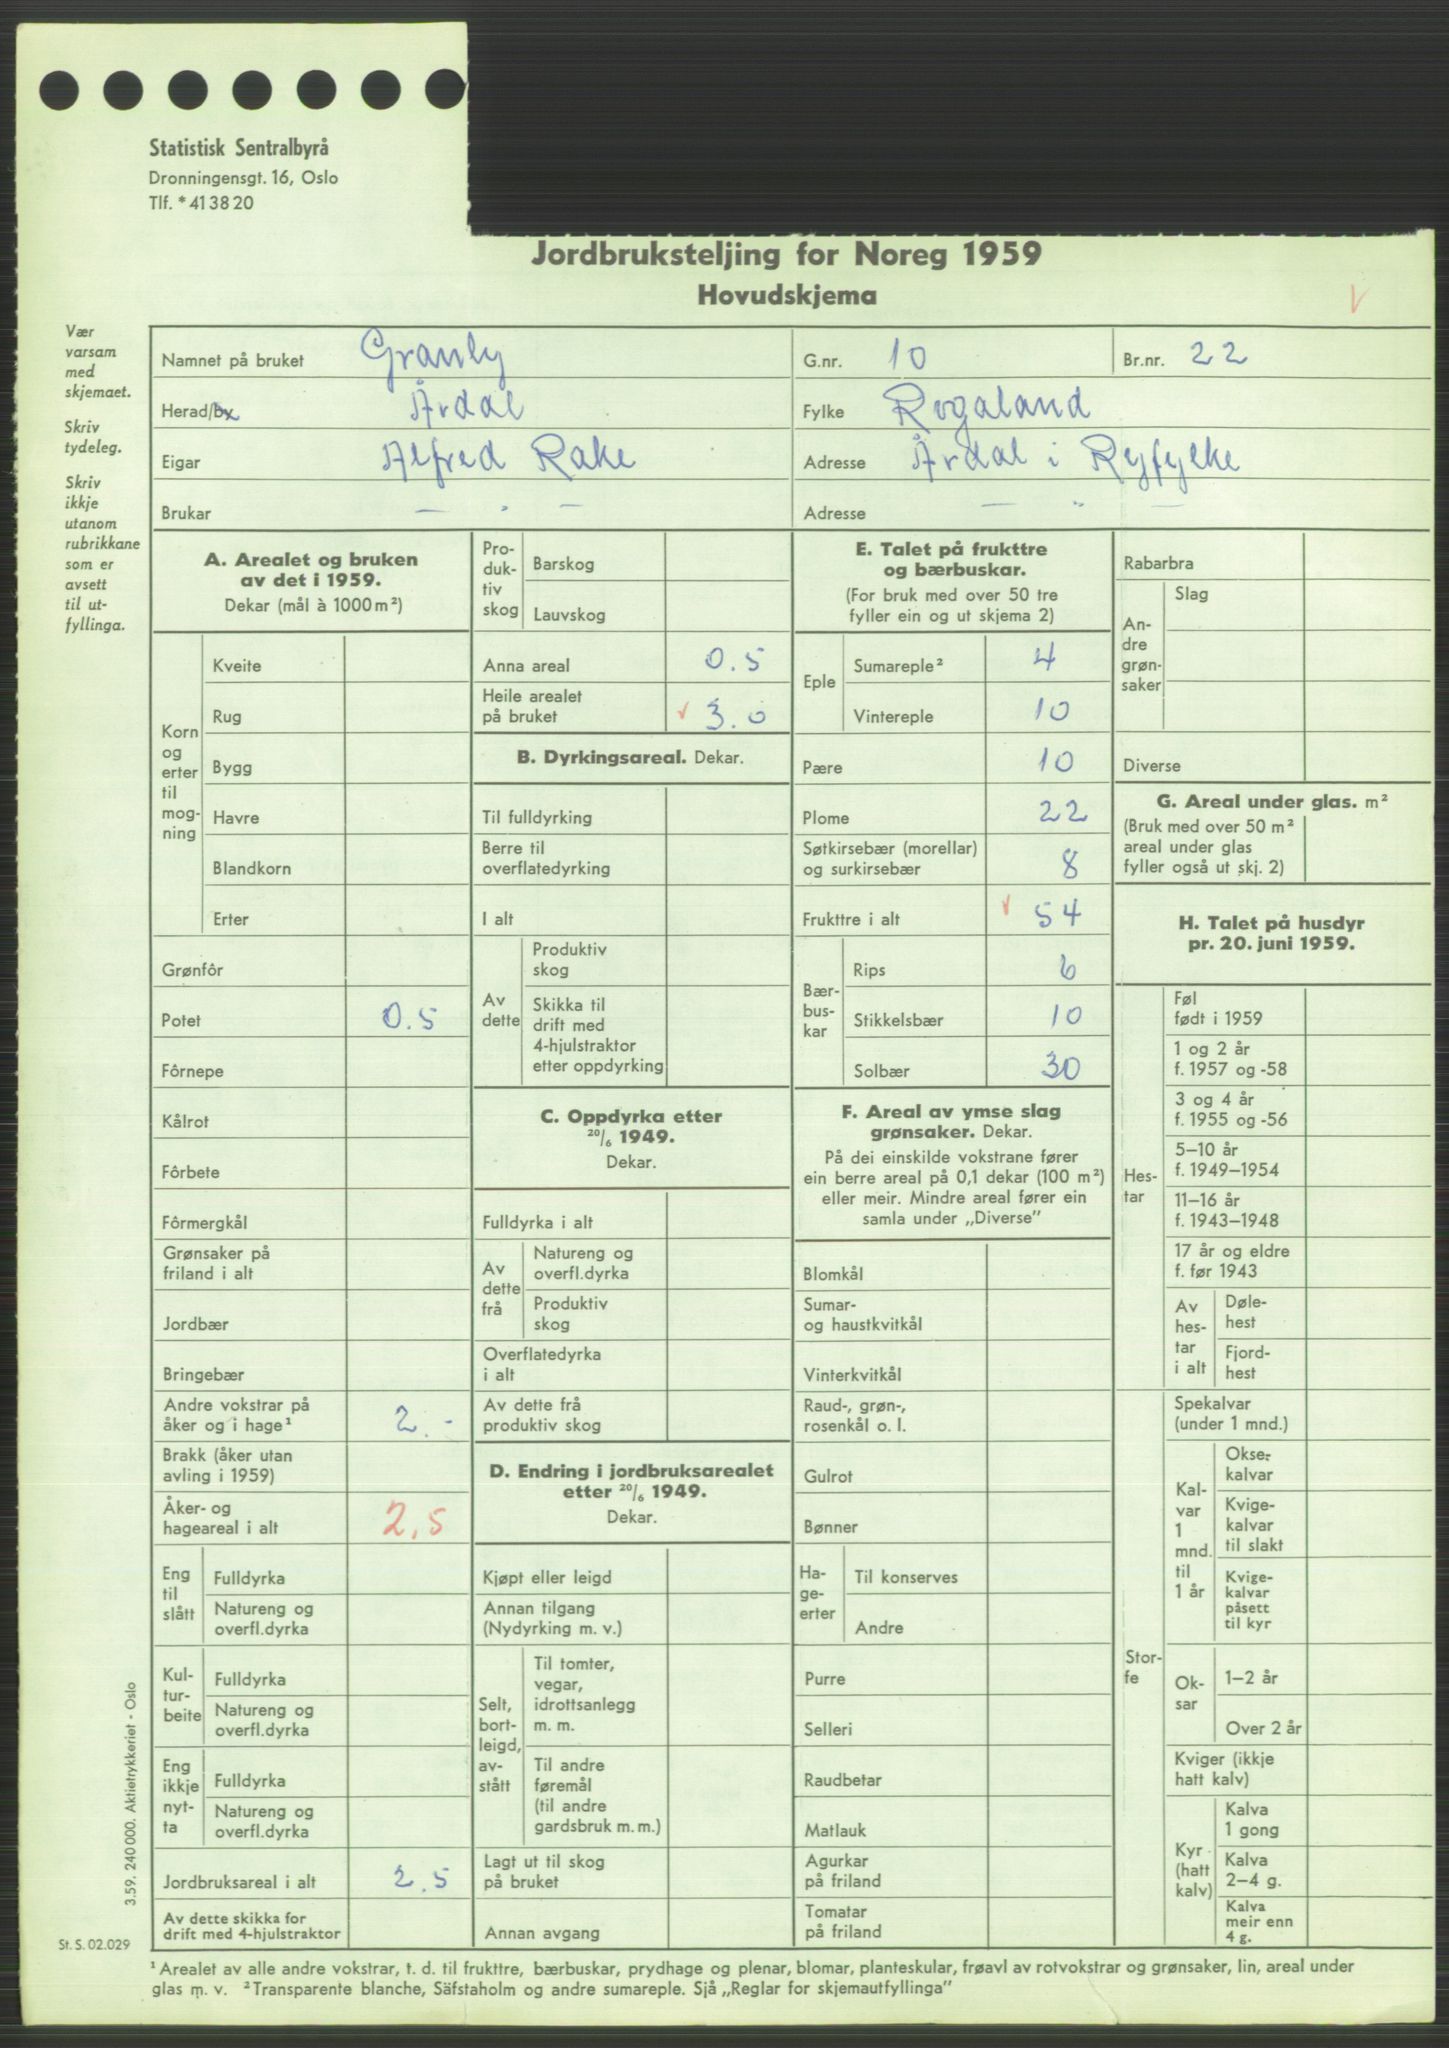 Statistisk Sentralbyrå
Dronningensgt. 16, Oslo
Tlf. * 41 38 20
Jordbruksteljing for Noreg 1959
Hovudskjema
V
Vær
varsam
med
skjemaet.
Skriv
tydeleg.
Skriv
ikkje
utanom
rubrikkane
som er
avsett
til ut-
fyllinga.
Namnet på bruket Granly G.nr. 10 Br.nr. 22
Herad/by Årdal Fylke Rogaland
Eigar Alfred Rake Adresse Årdal i Ryfylke
Brukar — " — Adresse — " —
A. Arealet og bruken
av det i 1959.
Dekar (mål à 1000 m²)
Korn
og
erter
til
mog-
ning
Kveite
Rug
Bygg
Havre
Blandkorn
Erter
Grønfôr
Potet 0.5
Fôrnepe
Kålrot
Fôrbete
Fôrmergkål
Grønsaker på
friland i alt
Jordbær
Bringebær
Andre vokstrar på
åker og i hage¹ 2.-
Brakk (åker utan
avling i 1959)
Åker- og
hageareal i alt 2,5
Eng
til
slått
Fulldyrka
Natureng og
overfl.dyrka
Kul-
tur-
beite
Fulldyrka
Natureng og
overfl.dyrka
Eng
ikkje
nyt-
ta
Fulldyrka
Natureng og
overfl.dyrka
Jordbruksareal i alt 2.5
Av dette skikka for
drift med 4-hjulstraktor
Pro-
duk-
tiv
skog
Barskog
Lauvskog
Anna areal 0.5
Heile arealet
på bruket √ 3.0
B. Dyrkingsareal. Dekar.
Til fulldyrking
Berre til
overflatedyrking
I alt
Av
dette
Produktiv
skog
Skikka til
drift med
4-hjulstraktor
etter oppdyrking
C. Oppdyrka etter
20/6 1949.
Dekar.
Fulldyrka i alt
Av
dette
frå
Natureng og
overfl.dyrka
Produktiv
skog
Overflatedyrka
i alt
Av dette frå
produktiv skog
D. Endring i jordbruksarealet
etter 20/6 1949.
Dekar.
Kjøpt eller leigd
Annan tilgang
(Nydyrking m. v.)
Selt,
bort-
leigd,
av-
stått
Til tomter,
vegar,
idrottsanlegg
m. m.
Til andre
føremål
(til andre
gardsbruk m. m.)
Lagt ut til skog
på bruket
Annan avgang
E. Talet på frukttre
og bærbuskar.
(For bruk med over 50 tre
fyller ein og ut skjema 2)
Eple
Sumareple² 4
Vintereple 10
Pære 10
Plome 22
Søtkirsebær (morellar)
og surkirsebær 8
Frukttre i alt √ 54
Bær-
bus-
kar
Rips 6
Stikkelsbær 10
Solbær 30
F. Areal av ymse slag
grønsaker. Dekar.
På dei einskilde vokstrane fører
ein berre areal på 0,1 dekar (100 m²)
eller meir. Mindre areal fører ein
samla under „Diverse”
Blomkål
Sumar-
og haustkvitkål
Vinterkvitkål
Raud-, grøn-,
rosenkål o. l.
Gulrot
Bønner
Ha-
ge-
erter
Til konserves
Andre
Purre
Selleri
Raudbetar
Matlauk
Agurkar
på friland
Tomatar
på friland
Rabarbra
An-
dre
grøn-
saker
Slag
Diverse
G. Areal under glas. m²
(Bruk med over 50 m²
areal under glas
fyller også ut skj. 2)
H. Talet på husdyr
pr. 20. juni 1959.
Hes-
tar
Føl
født i 1959
1 og 2 år
f. 1957 og -58
3 og 4 år
f. 1955 og -56
5–10 år
f. 1949–1954
11–16 år
f. 1943–1948
17 år og eldre
f. før 1943
Av
hes-
tar
i alt
Døle-
hest
Fjord-
hest
Stor-
fe
Spekalvar
(under 1 mnd.)
Kal-
var
1
mnd.
til
1 år
Okse-
kalvar
Kvige-
kalvar
til slakt
Kvige-
kalvar
påsett
til kyr
Ok-
sar
1–2 år
Over 2 år
Kviger (ikkje
hatt kalv)
Kyr
(hatt
kalv)
Kalva
1 gong
Kalva
2–4 g.
Kalva
meir enn
4 g.
3.59. 240 000. Aktietrykkeriet - Oslo
St. S. 02.029
¹ Arealet av alle andre vokstrar, t. d. til frukttre, bærbuskar, prydhage og plenar, blomar, planteskular, frøavl av rotvokstrar og grønsaker, lin, areal under
glas m. v. ² Transparente blanche, Säfstaholm og andre sumareple. Sjå „Reglar for skjemautfyllinga”